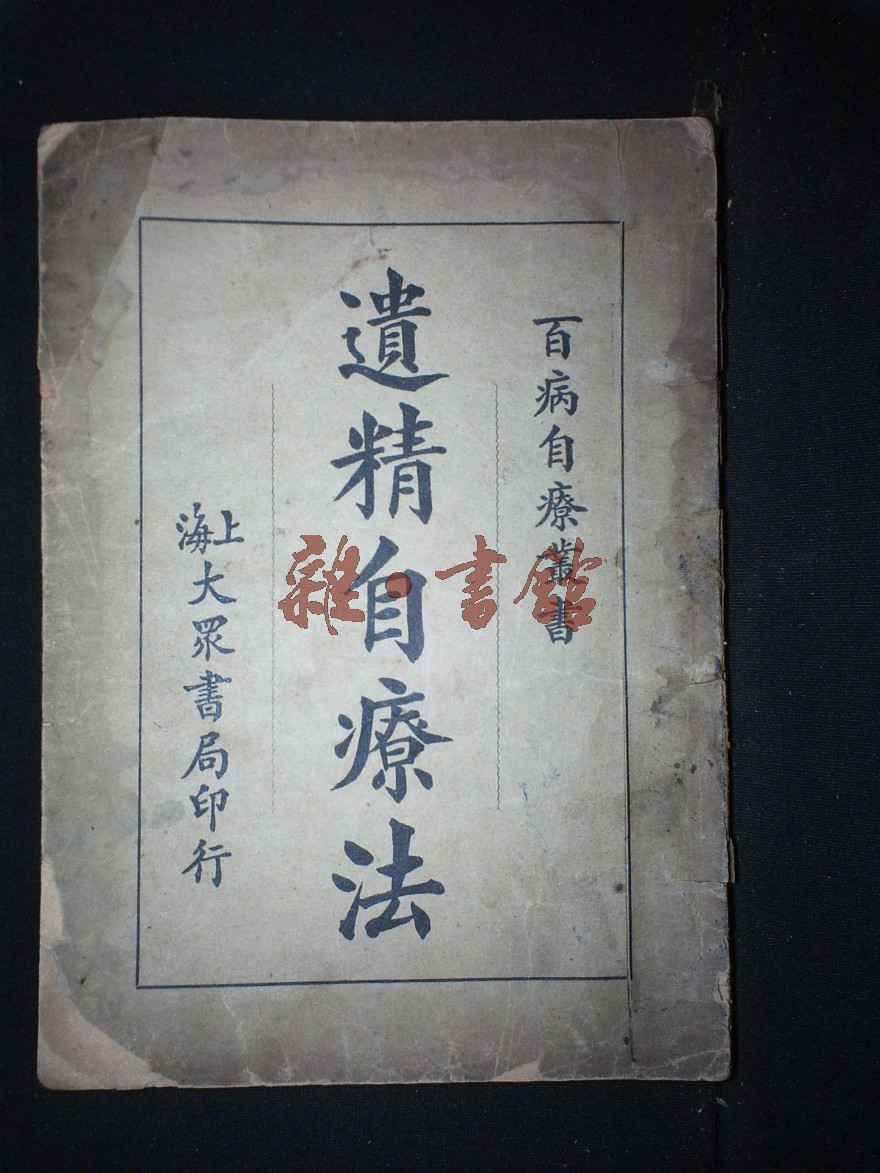 百病自療叢書
遺精自療法
上海
大眾書局印行
雜·書館